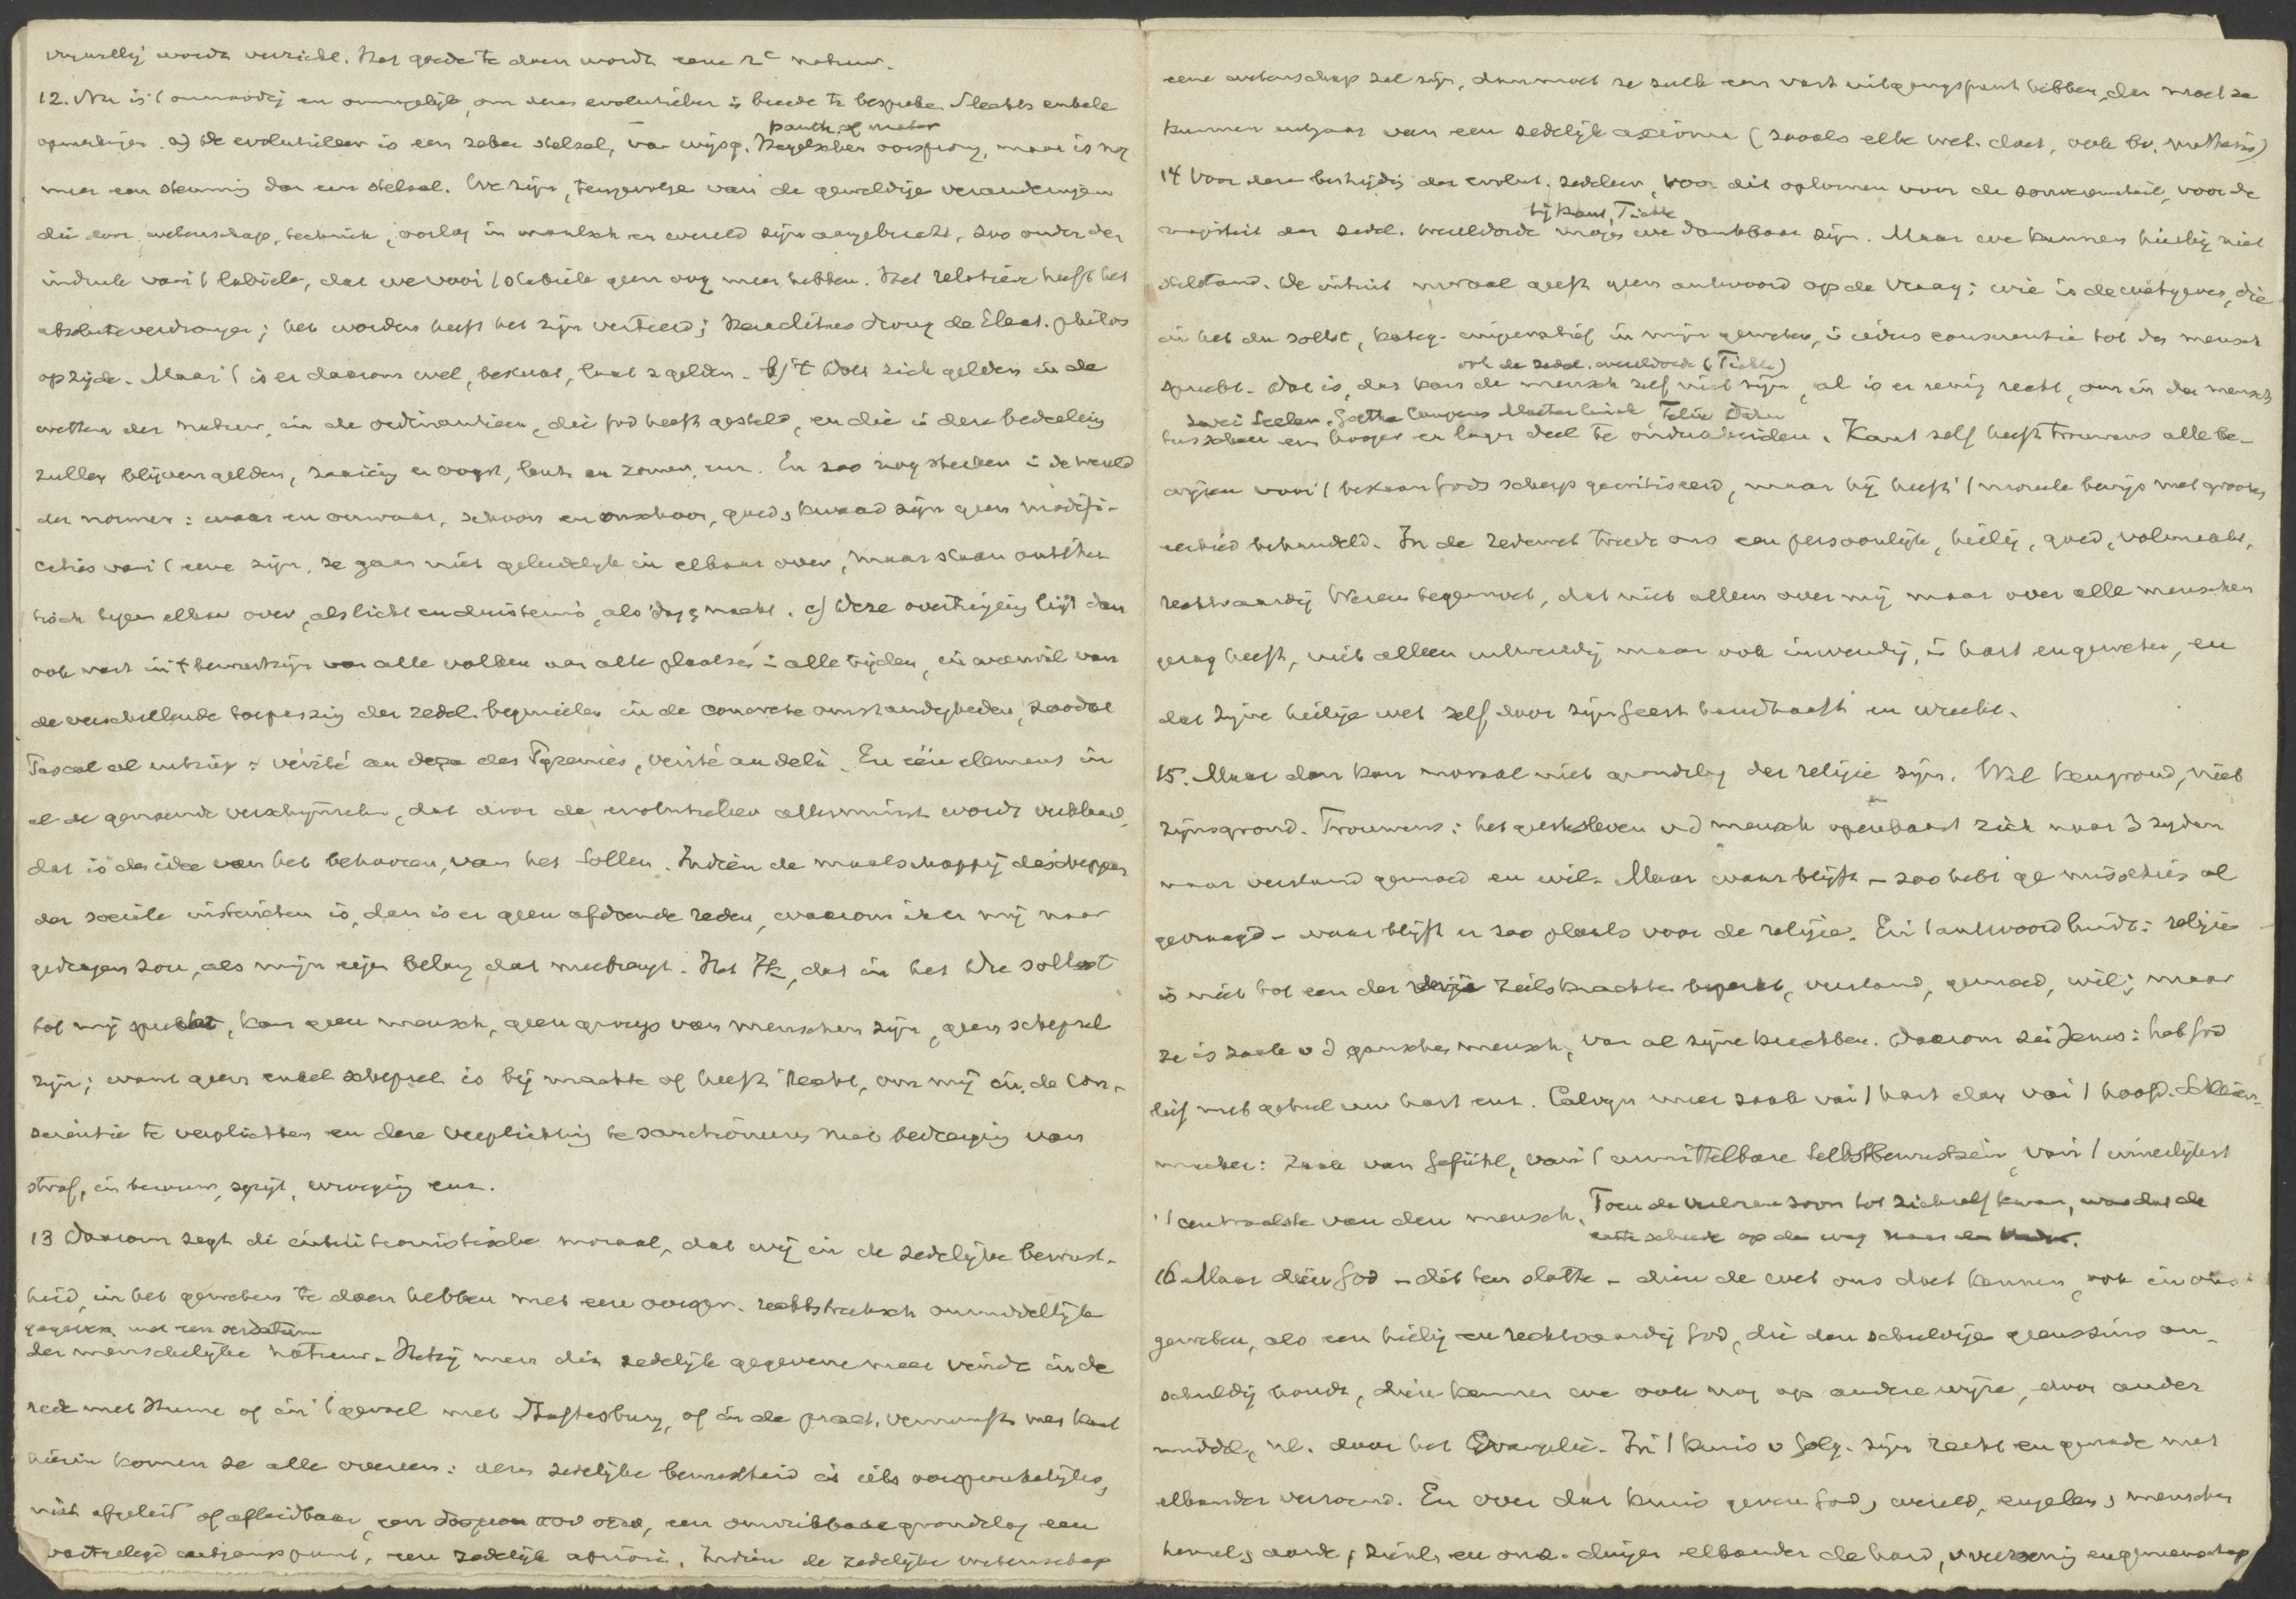 vrijwillig wordt verricht. Het goede te doen wordt eene 2e natuur.
12. Nu is 't onnoodig en onmogelijk, om deze evolutieleer in breede te bespreken. Slechts enkele
panth. of mater
opmerkingen. a) De evolutieleer is een zeker stelsel, van wijsg. Hegelschen oorsprong, maar is nog
meer een stemming dan een stelsel. We zijn, tengevolge van de geweldige veranderingen
die door wetenschap, techniek, oorlog in mensch en wereld zijn aangebracht, zoo onder den
indruk van 't labiele, dat we voor 't stabiele geen oog meer hebben. Het relatieve heeft het
absolute verdrongen; het worden heeft het zijn verteerd; Heraclitus drong de Eleat. philos
opzijde. Maar 't is er daarom wel, bestaat, laat z. gelden. b) 't Doet zich gelden in de
wetten der natuur, in de ordinantiën, die God heeft gesteld, en die in deze bedeeling
zullen blijven gelden, zaaiing en oogst, lente en zomer, enz. En zoo nog sterker in de wereld
der normen: waar en onwaar, schoon en onschoon, goed en kwaad zijn geen modifi-
caties van 't eene zijn, ze gaan niet geleidelijk in elkaar over, maar staan antithe-
tisch tegen elkaar over, als licht en duisternis, als dag en nacht. c) Deze overtuiging ligt dan
ook vast in 't bewustzijn van alle volken van alle plaatsen in alle tijden, in weerwil van
de verschillende toepassing der zedel. beginselen in de concrete omstandigheden, zoodat
Pascal al uitriep: vérité au deça des Pyrenées, vérité au delà. En één element in
al de genoemde verschijnselen, dat door de evolutieleer allerminst wordt verklaard,
dat is de idee van het behooren, van het Sollen. Indien de maatschappij de schepper
der sociale instincten is, dan is er geen afdoende reden, waarom ik er mij naar
gedragen zou, als mijn eigen belang dat meebrengt. Het Ik, dat in het Du sollst
tot mij spreekt, kan geen mensch, geen groep van menschen zijn, geen schepsel
zijn; want geen enkel schepsel is bij machte of heeft 't recht, om mij in de con-
scientie te verplichten en deze verplichting te sanctioneeren met bedreiging van
straf, in berouw, spijt, wroeging enz.
13 Daarom zegt de intuitionistische moraal, dat wij in de zedelijke bewust-
heid, in het geweten te doen hebben met een oorspr. rechtstreeksch onmiddellijk
gegeven, met een oerdatum
der menschelijke natuur. Hetzij men dit zedelijk gegevene meer vindt in de
rede met Hume of in 't gevoel met Shaftesbury, of in de pract. vernunft met Kant
hierin komen ze alle overeen: deze zedelijke bewustheid is iets oorspronkelijks,
niet afgeleid of afleidbaar, een δος μοι που στω, een onwrikbare grondslag een
vastgelegd uitgangspunt, een zedelijk apriori. Indien de zedelijke wetenschap
eene wetenschap zal zijn, dan moet ze zulk een vast uitgangspunt hebben, dan moet ze
kunnen uitgaan van een zedelijk axioma (zooals elke wet. doet, ook bv. mathesis)
14 Voor deze bestrijding der evolut. zedeleer, voor dit opkomen voor de souvereiniteit, voor de
bij Kant, Fichte
majesteit der zedel. wereldorde mogen we dankbaar zijn. Maar we kunnen hierbij niet
stilstaan. De intuit moraal geeft geen antwoord op de vraag: wie is de wetgever, die
in het du sollst, kateg. imperatief in mijn geweten, in ieders conscientie tot den mensch
ook de zedel. wereldorde (Fichte)
spreekt. Dat is, dat kan de mensch zelf niet zijn, al is er eenig recht, om in den mensch
zwei Seelen. Goethe Couperus Maeterlinck Felix Dahn
tusschen een hooger en lager deel te onderscheiden. Kant zelf heeft trouwens alle be-
wijzen voor 't bestaan Gods scherp gecritiseerd, maar hij heeft 't moreele bewijs met grooten
eerbied behandeld. In de zedewet treedt ons een persoonlijk, heilig, goed, volmaakt,
rechtvaardig Wezen tegemoet, dat niet alleen over mij maar over alle menschen
gezag heeft, niet alleen uitwendig maar ook inwendig, in hart en geweten, en
dat zijne heilige wet zelf door zijn Geest handhaaft en wreekt.
15. Maar dan kan moraal niet grondslag der religie zijn. Wel kengrond, niet
zijnsgrond. Trouwens: het geestesleven v d mensch openbaart zich naar 3 zijden
naar verstand gemoed en wil. Maar waar blijft – zoo hebt ge misschien al
gevraagd – waar blijft er zoo plaats voor de religie. En 't antwoord luidt: religie
is niet tot een der drie zielskrachten beperkt, verstand, gemoed, wil; maar
ze is zaak v d ganschen mensch, van al zijne krachten. Daarom zei Jezus: heb God
lief met geheel uw hart enz. Calvijn meer zaak van 't hart dan van 't hoofd. Schleier-
macher: zaak van Gefühl, van 't unmittelbare Selbstbewustsein, van 't innerlijkst
't centraalste van den mensch. Toen de verloren zoon tot zichzelf kwam, was dat de
eerste schrede op den weg naar den Vader.
16 Maar dien God – dit ten slotte – dien de wet ons doet kennen, ook in ons
geweten, als een heilig en rechtvaardig God, die den schuldige geenszins on-
schuldig houdt, dien kennen we ook nog op andere wijze, door ander
middel, nl. door het Evangelie. In 't kruis v Golg. zijn recht en genade met
elkander verzoend. En over dat kruis geven God en wereld, engelen en menschen
hemel en aarde, zienl. en onz. dingen elkander de hand, verzoening en gemeenschap